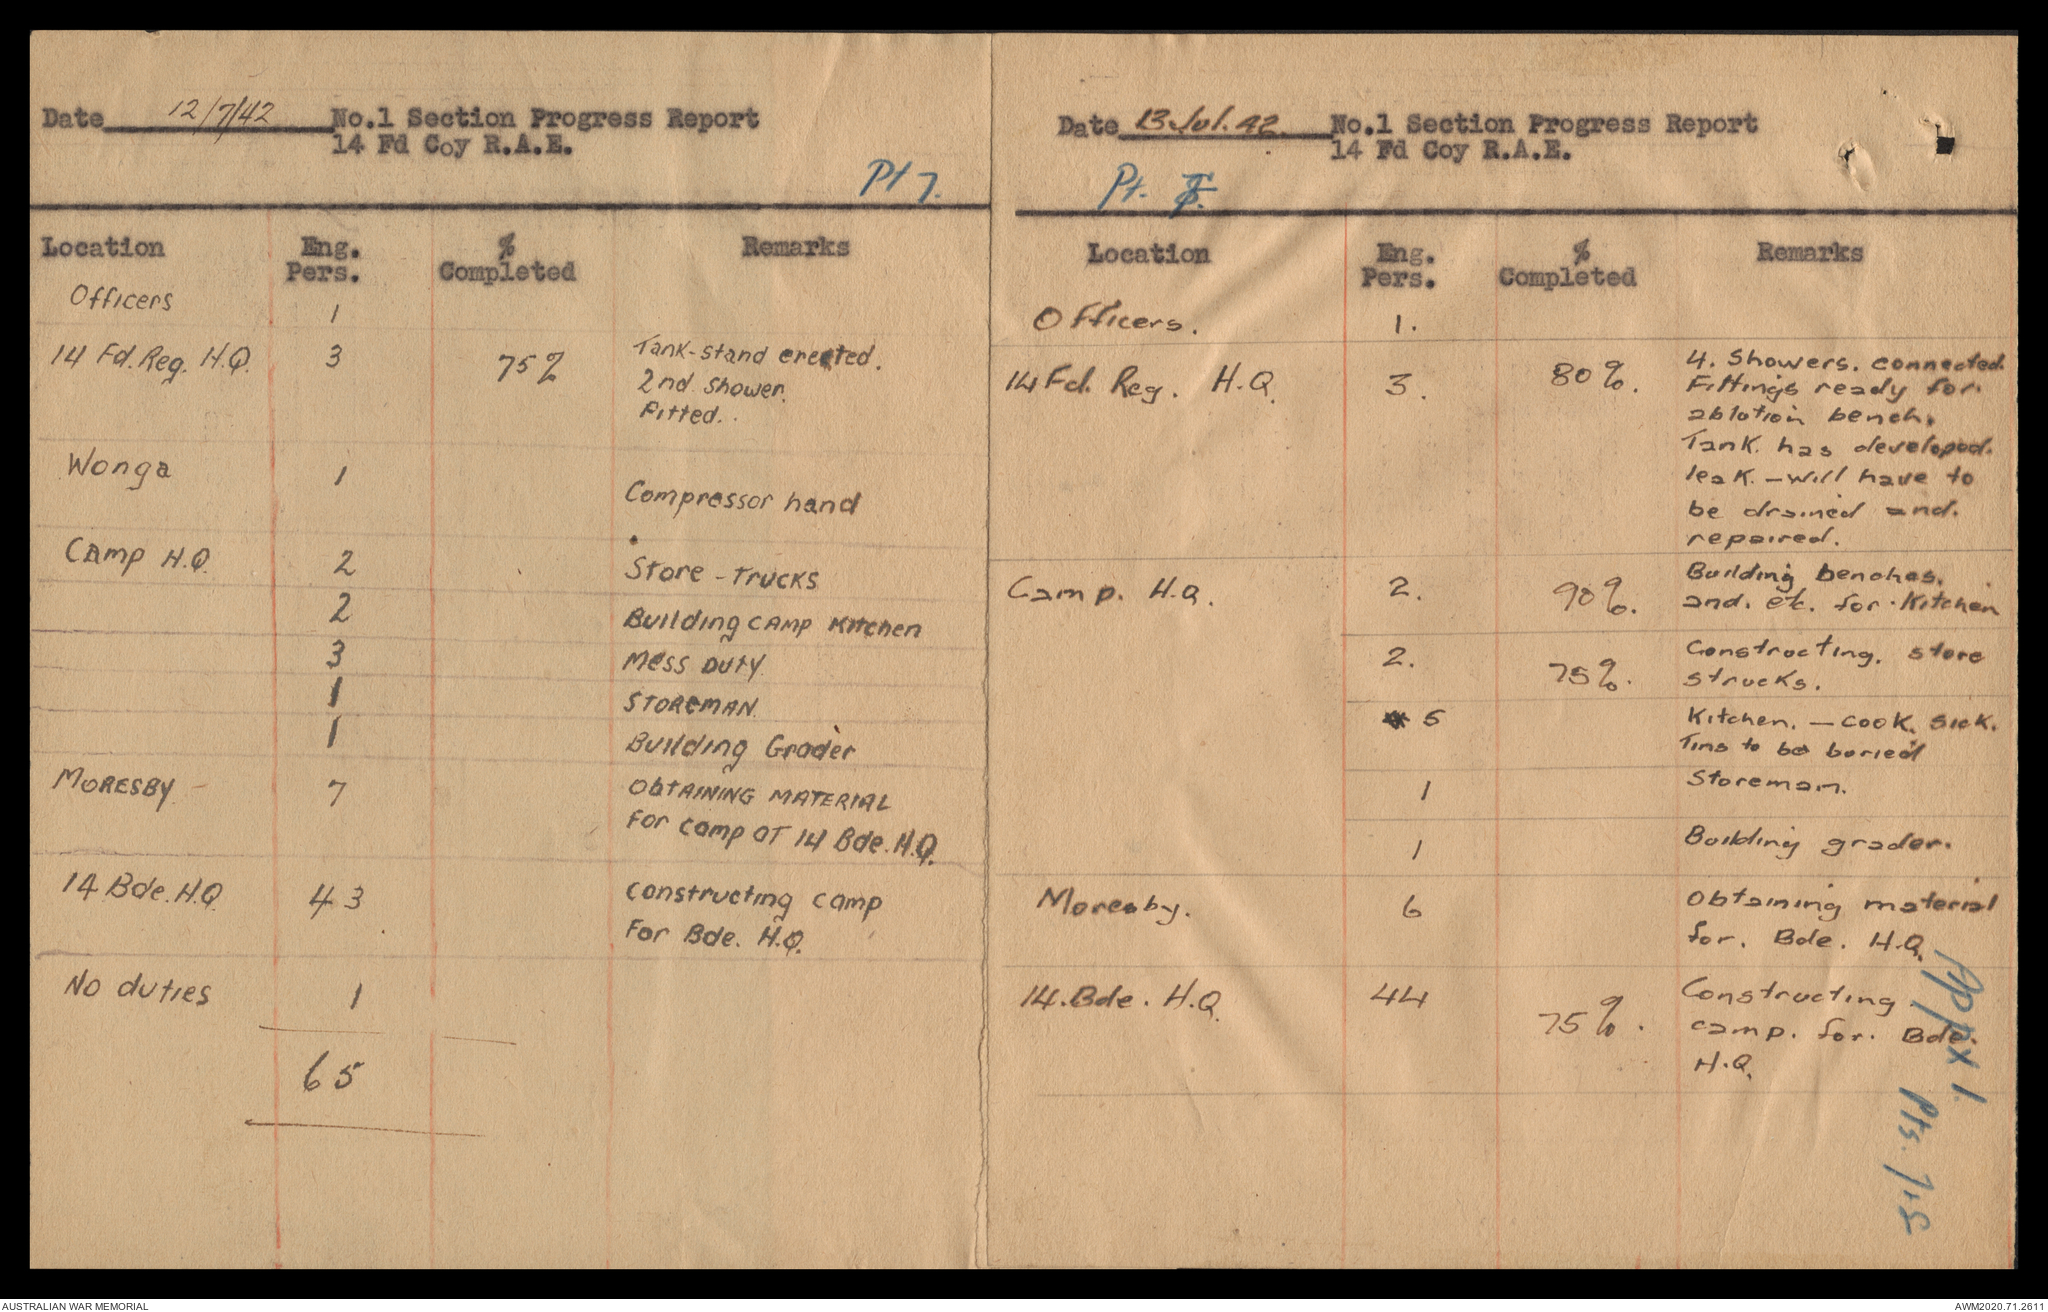 Date 12/7/42 No.1 Section Progress Report
14 Fd Coy R.A.E.
Pt 7.
Location Eng. Pers. % Completed Remarks
Officers 1
14 Fd. Reg. H.Q. 3 75% Tank-stand erected.
2nd shower
Fitted.
Wonga 1 Compressor hand
Camp H.Q. 2 Store - Trucks
2 Building camp kitchen
3 Mess Duty
1 STOREMAN
1 Building Grader
MORESBY 7 ObTAINING MATERIAL
For camp at 14 Bde. H.Q.
14 Bde. H.Q. 43 constructing camp
For Bde. H.Q.
No duties 1
65
Date 13.Jul.42. No.1 Section Progress Report
14 Fd Coy R.A.E.
Pt.
Location Eng. Pers. % Completed Remarks
Officers. 1.
14 Fd. Reg. H.Q. 3. 80%. 4. Showers. connected.
Fittings ready for.
ablution bench.
Tank. has developed.
leak. - will have to
be drained and.
repaired.
Camp. H.Q. 2. 90%. Building benches.
and. etc. for. Kitchen
2. 75%. Constructing. store
strucks.
5 Kitchen. - cook. sick.
Tins to be buried
1 Storeman.
1 Building grader.
Moresby. 6 Obtaining material
for. Bde. H.Q.
14. Bde. H.Q. 44 75%. Constructing
camp. for. Bde.
H.Q.
Appx 1.
Pts. 7+8
AUSTRALIAN WAR MEMORIAL
AWM2020.71.2611